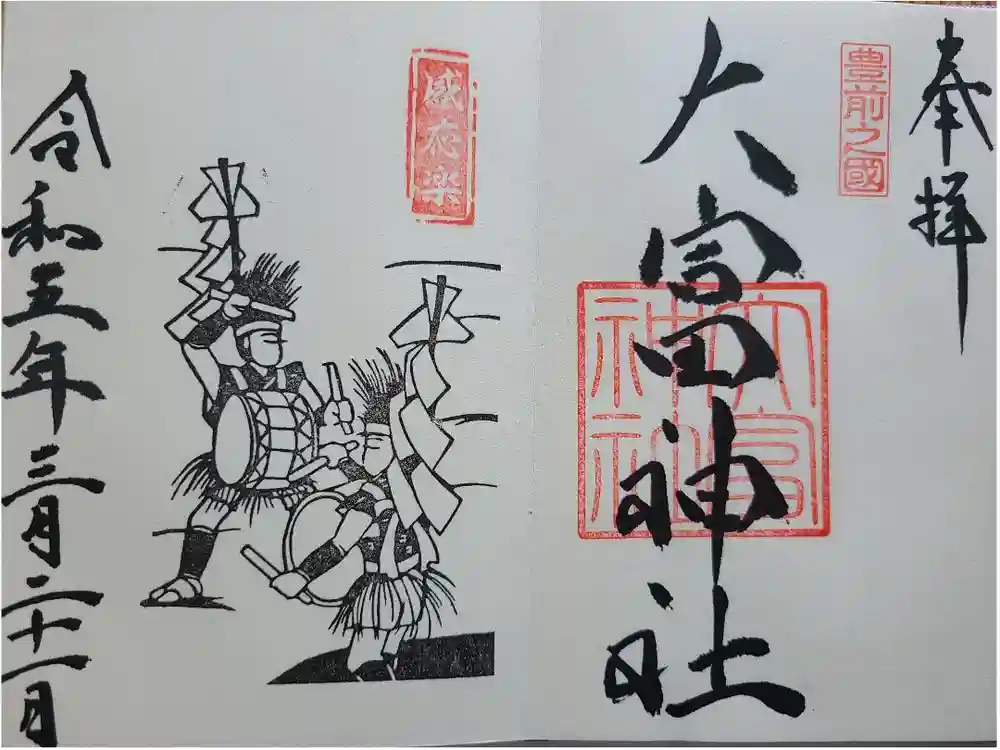 奉拝
豊前之國
大富神社
大富神社
感応楽
令和五年三月二十一日